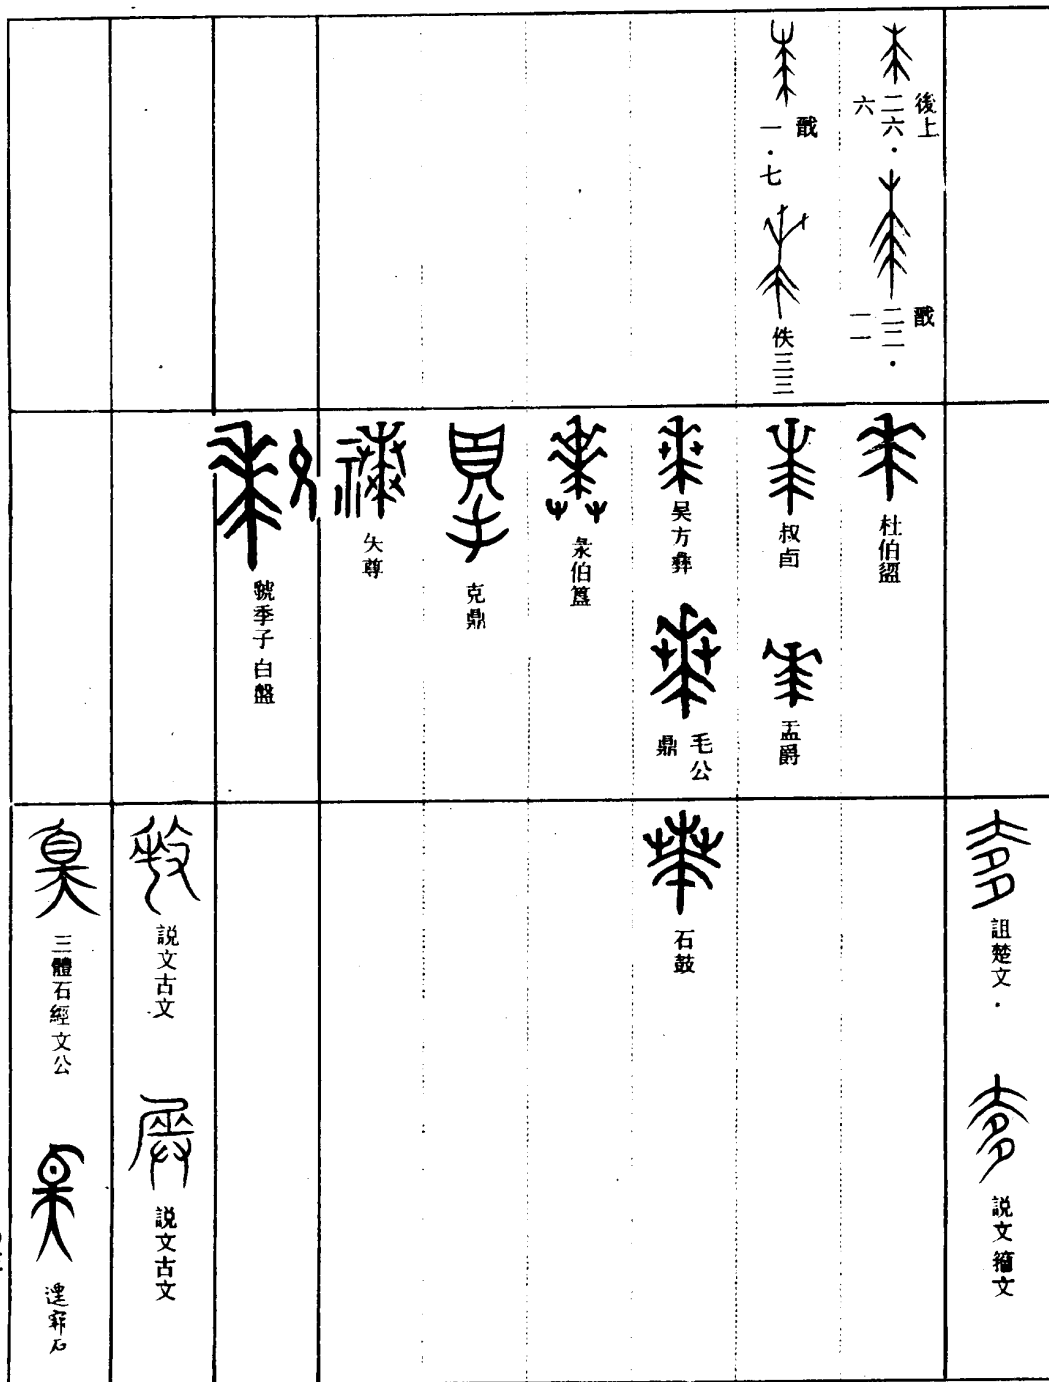 後上
二六·
六
戩
二二·
一一
戩
一·七
佚三三
杜伯盨
叔卣
盂爵
吴方彝
毛公
鼎
彔伯簋
克鼎
夨尊
虢季子白盤
詛楚文·
説文籀文
石鼓
説文古文
説文古文
三體石經文公